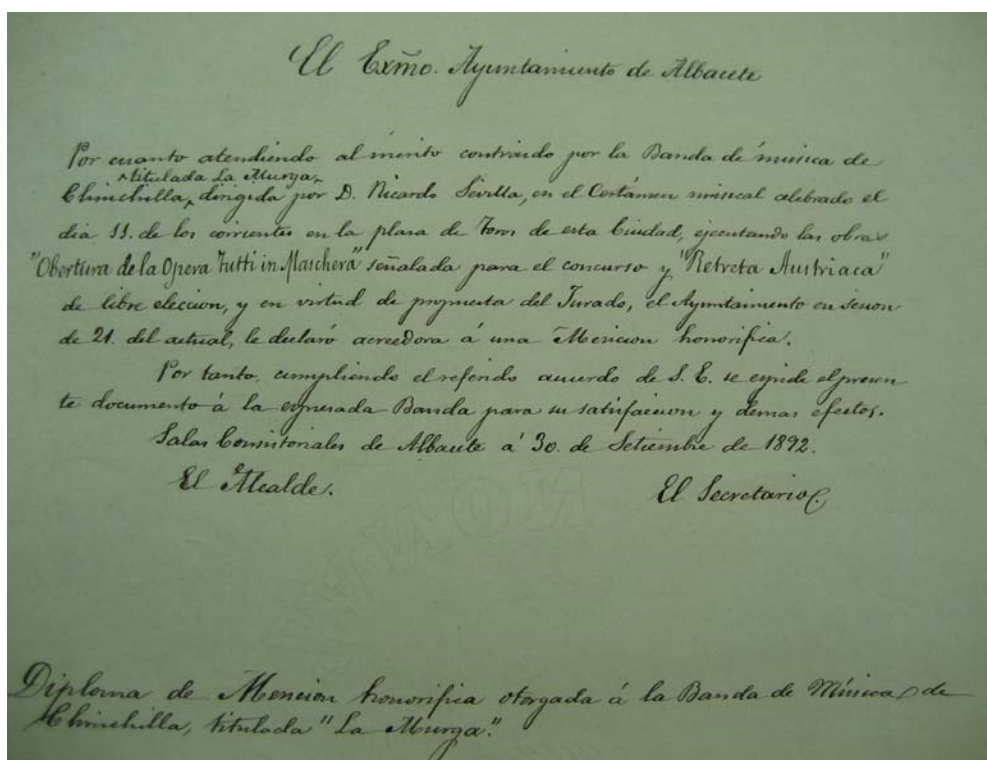 El Exm̃o. Ayuntamiento de Albacete
Por cuanto atendiendo al mérito contraido por la Banda de música de
titulada La Murga,
Chinchilla, dirigida por D. Ricardo Sevilla, en el Certámen musical celebrado el
dia 11. de los corrientes en la plaza de Toros de esta Ciudad, ejecutando las obras
"Obertura de la Opera Tutti in Maschera" señalada para el concurso y "Retreta Austriaca"
de libre eleccion, y en virtud de propuesta del Jurado, el Ayuntamiento en sesion
de 21. del actual, le declaró acreedora á una Mencion honorifica.
Por tanto, cumpliendo el referido acuerdo de S. E. se expide el presen
te documento á la expresada Banda para su satisfaccion y demas efectos.
Salas Consistoriales de Albacete á 30. de Setiembre de 1892.
El Alcalde. El Secretario
Diploma de Mencion honorifica otorgada á la Banda de Música de
Chinchilla, titulada "La Murga".